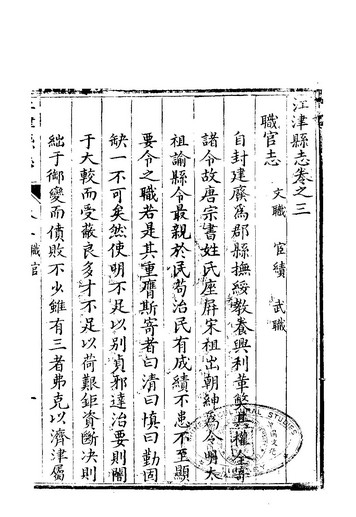 江津縣志卷之三
職官志
文職 宦績 武職
自封建廢為郡縣撫綏教養興利革弊其權全寄
諸令故唐宗書姓氏座屏宋祖出朝紳為令明太
祖諭縣令最親於民茍治民有成績不患不至顯
要令之職若是其重膺斯寄者曰清曰慎曰勤固
缺一不可矣然使明不足以別貞邪達治要則闇
于大較而受蔽良多才不足以荷艱鉅資斷決則
絀于御變而僨敗不少雖有三者弗克以濟津屬
職官